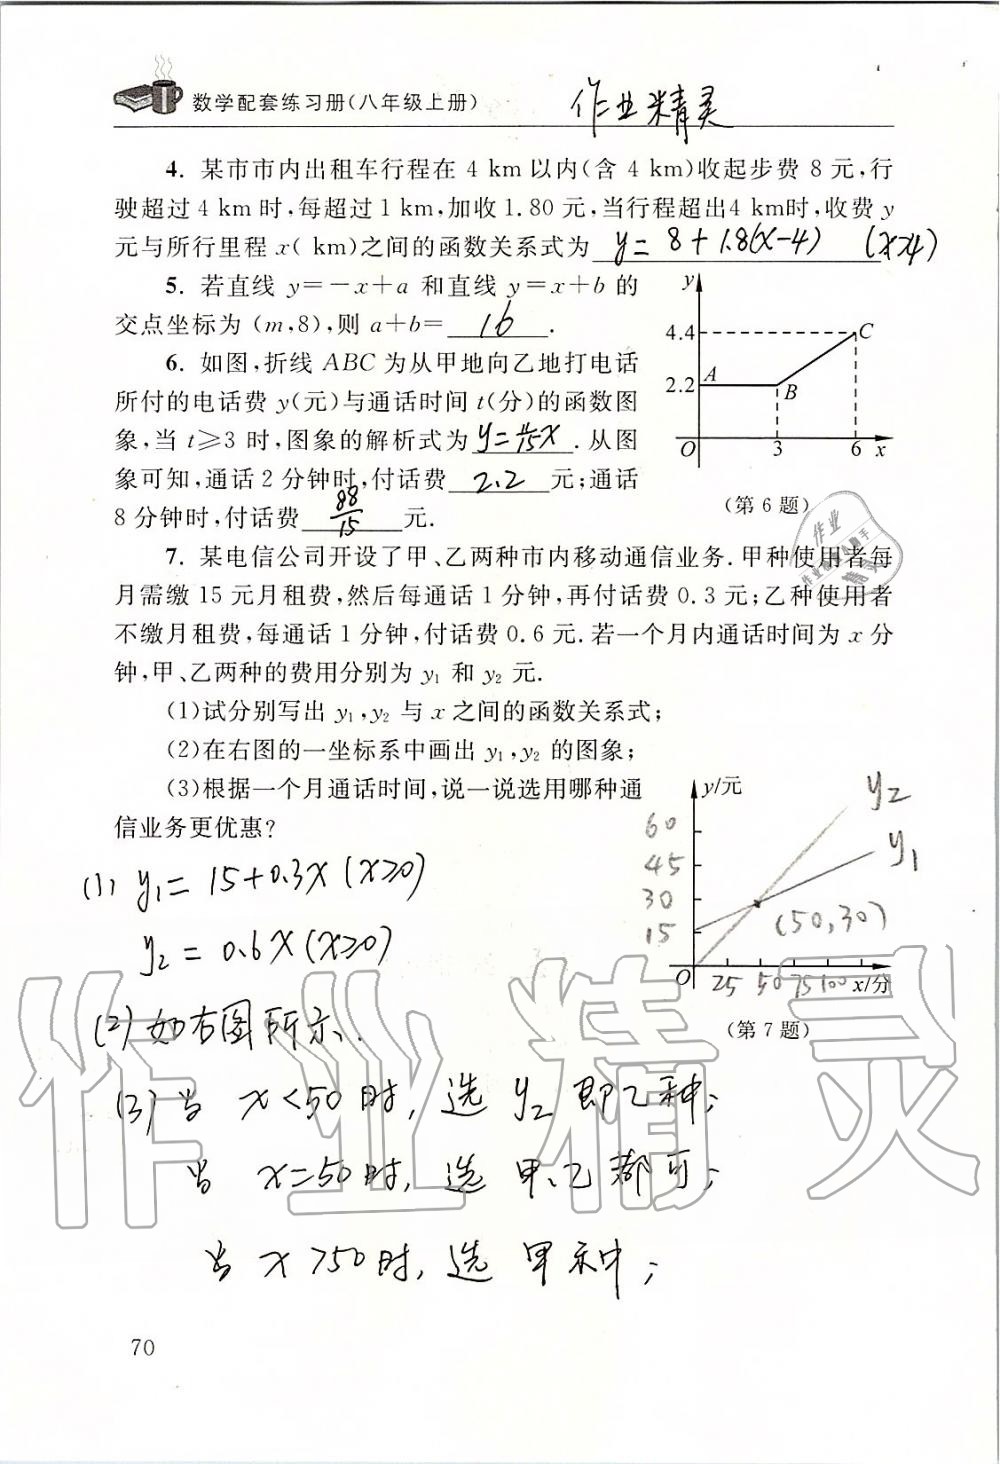 数学配套练习册(八年级上册)
作业精灵
4. 某市市内出租车行程在 4 km 以内(含 4 km)收起步费 8 元,行
驶超过 4 km 时,每超过 1 km,加收 1.80 元,当行程超出4 km时,收费 y
元与所行里程 x( km)之间的函数关系式为 y=8+1.8(x-4) (x>4)
5. 若直线 y=-x+a 和直线 y=x+b 的
交点坐标为 (m,8),则 a+b= 16 .
6. 如图,折线 ABC 为从甲地向乙地打电话
所付的电话费 y(元)与通话时间 t(分)的函数图
象,当 t⩾3 时,图象的解析式为 y=11/15x .从图
象可知,通话 2 分钟时,付话费 2.2 元;通话
8 分钟时,付话费 88/15 元.
y
4.4
C
2.2
A
B
O
3
6
x
(第 6 题)
7. 某电信公司开设了甲、乙两种市内移动通信业务.甲种使用者每
月需缴 15 元月租费,然后每通话 1 分钟,再付话费 0.3 元;乙种使用者
不缴月租费,每通话 1 分钟,付话费 0.6 元.若一个月内通话时间为 x 分
钟,甲、乙两种的费用分别为 y₁ 和 y₂ 元.
(1)试分别写出 y₁,y₂ 与 x 之间的函数关系式;
(2)在右图的一坐标系中画出 y₁,y₂ 的图象;
(3)根据一个月通话时间,说一说选用哪种通
信业务更优惠?
y/元
y₂
y₁
60
45
30
15
(50,30)
O
25 50 75 100 x/分
(第 7 题)
(1) y₁=15+0.3x(x≥0)
y₂=0.6x(x≥0)
(2)如右图所示.
(3)当 x<50时,选 y₂即乙种;
当 x=50时,选 甲、乙都可;
当 x>50时,选 甲种;
作业精灵
70